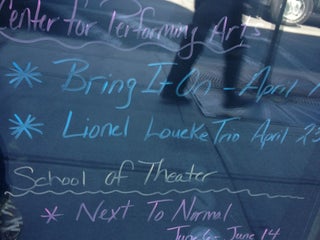 Center for Performing Arts
* Bring It On - April 1
* Lionel Loueke Trio April 23
School of Theater
* Next To Normal
June 6 - June 14